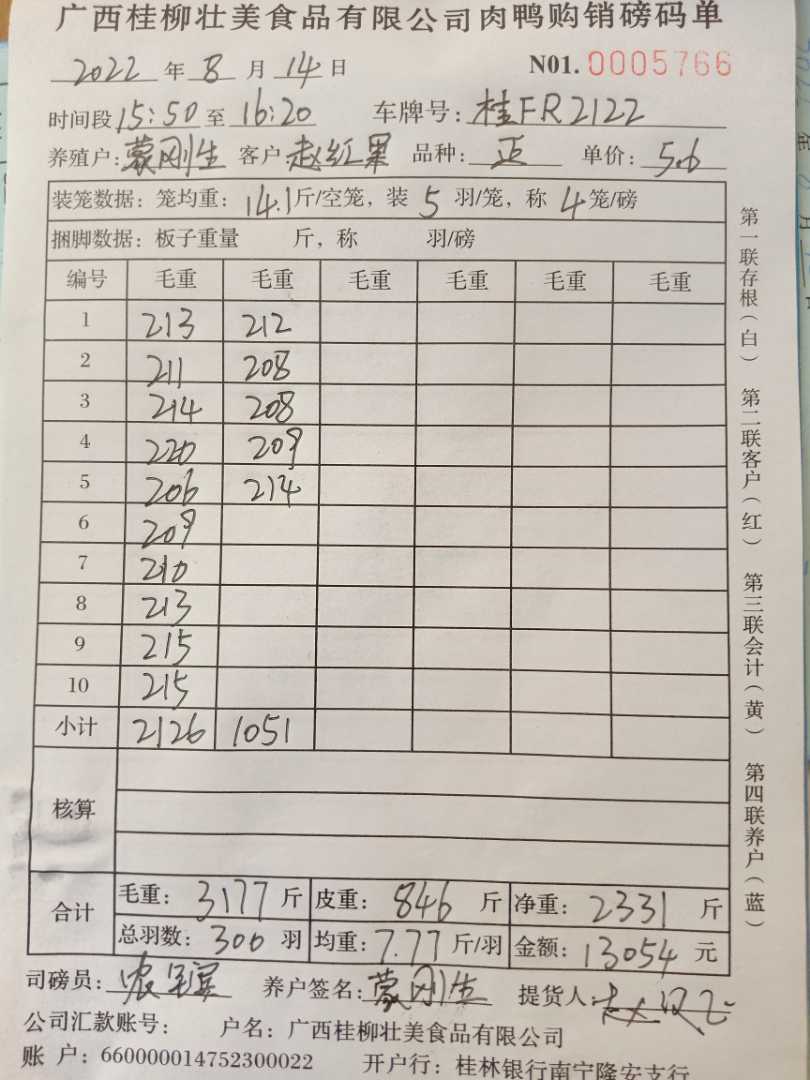 广西桂柳壮美食品有限公司肉鸭购销磅码单
2022 年 8 月 14 日 N01. 0005766
时间段 15:50 至 16:20 车牌号: 桂FR2122
养殖户: 蒙刚生 客户 赵红果 品种: 正 单价: 5.6
装笼数据: 笼均重: 14.1 斤/空笼, 装 5 羽/笼, 称 4 笼/磅
捆脚数据: 板子重量 斤, 称 羽/磅
编号 毛重 毛重 毛重 毛重 毛重 毛重
1 213 212
2 211 208
3 214 208
4 220 209
5 206 214
6 209
7 210
8 213
9 215
10 215
小计 2126 1051
核算
合计
毛重: 3177 斤 皮重: 846 斤 净重: 2331 斤
总羽数: 300 羽 均重: 7.77 斤/羽 金额: 13054 元
司磅员: 养户签名: 蒙刚生 提货人:
公司汇款账号: 户名: 广西桂柳壮美食品有限公司
账 户: 660000014752300022 开户行: 桂林银行南宁隆安支行
第一联存根(白) 第二联客户(红) 第三联会计(黄) 第四联养户(蓝)